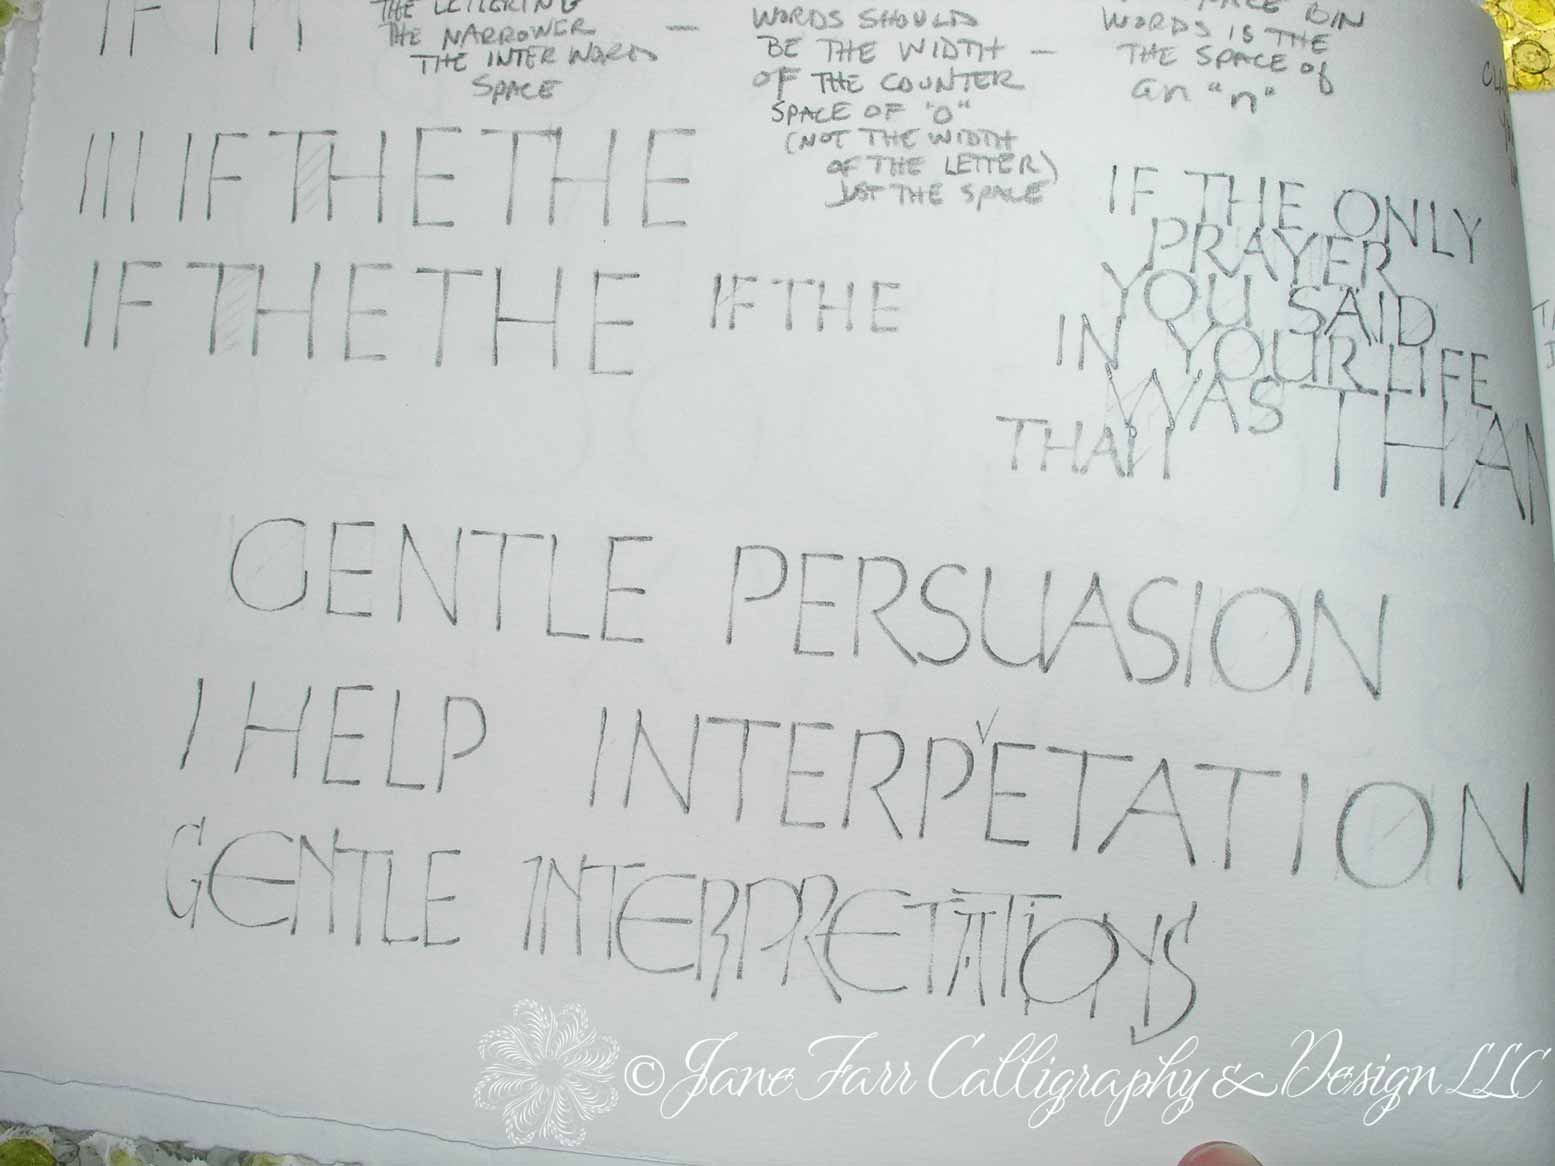 IF TH
THE LETTERING
THE NARROWER —
THE INTER WORD
SPACE
WORDS SHOULD
BE THE WIDTH —
OF THE COUNTER
SPACE OF "O"
(NOT THE WIDTH
OF THE LETTER)
JUST THE SPACE
SPACE B/N
WORDS IS THE
THE SPACE of
an "n"
III IF THE THE
IF THE THE IF THE
IF THE ONLY
PRAYER
YOU SAID
IN YOUR LIFE
WAS THAN
THAN
GENTLE PERSUASION
I HELP INTERPETATION
GENTLE INTERPRETATIONS
© Jane Farr Calligraphy & Design LLC